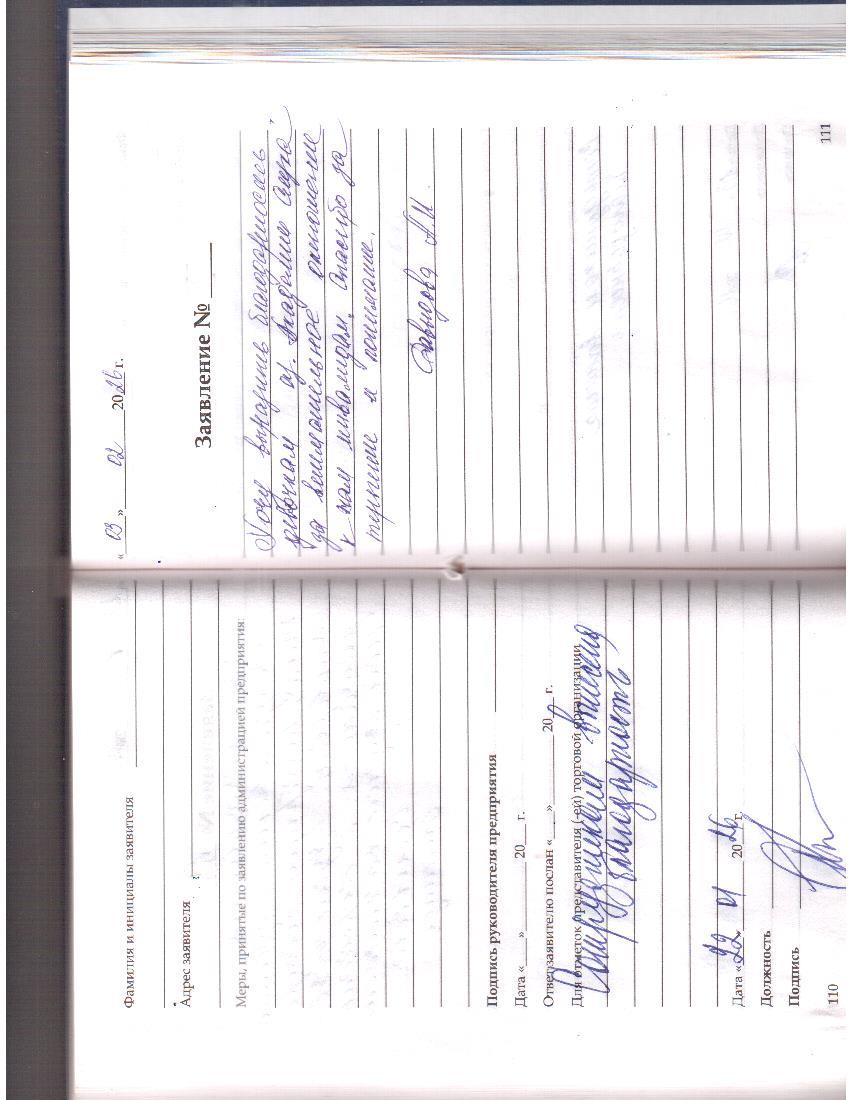 Фамилия и инициалы заявителя
Адрес заявителя
Меры, принятые по заявлению администрацией предприятия:
Подпись руководителя предприятия
Дата « » 20 г.
Ответ заявителю послан « » 20 г.
Для отметок представителя (-ей) торговой организации
Сотрудницам вынесена
благодарность
Дата «22» 01 2026 г.
Должность
Подпись
110
« 03 » 02 2026 г.
Заявление №
Хочу выразить благодарность
девочкам аз.
за внимательное отношение
к нам инвалидам. Спасибо за
терпение и понимание.
Давыдова А.И.
111